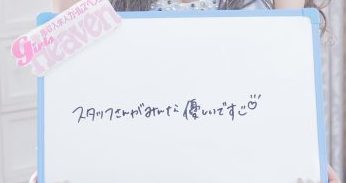 girls
heaven
スタッフさんがみんな優しいです♡